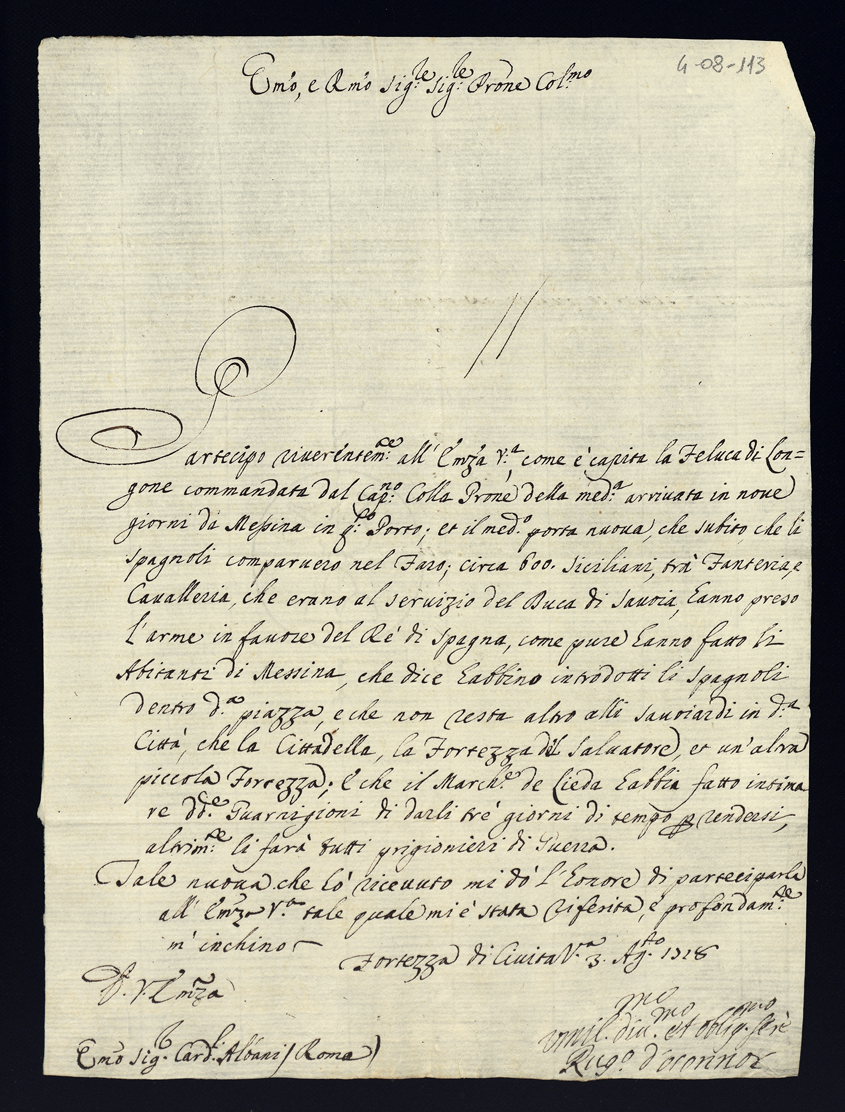 4-08-113
Em̃o, e Rm̃o Sig.re Sig.re Prone Col.mo
Partecipo riverentem.te all' Em̃za V.a, come è capita la Feluca di Lon=
gone commandata dal Cap.no Colla Prone della med.a arrivata in nove
giorni da Messina in q.to Porto; et il med.o porta nuova, che subito che li
spagnoli comparuero nel Faro; circa 600. Siciliani, trà Fanteria, e
Cavalleria, che erano al servizio del Duca di Savoia, hanno preso
l'arme in favore del Rè di Spagna, come pure hanno fatto li
Abitanti di Messina, che dice habbino introdotti li spagnoli
dentro d.a piazza, e che non resta altro alli savoiardi in d.a
Città, che la Cittadella, la Fortezza del Salvatore, et un'altra
piccola Fortezza; e che il March.e de Lieda habbia fatto intima
re dd.e Guarnigioni di darli tre giorni di tempo p rendersi,
altrim.te li farà tutti prigionieri di Guerra.
Tale nuova che hò ricevuto mi dò l'honore di parteciparla
all' Em̃za V.a tale quale mi è stata riferita, e profondam.te
m'inchino
Fortezza di Civita V.a 3. Ag.to 1718
D. V. Em̃za
Umil.mo div.mo et oblig.mo Ser.e
Rug.o d'oconnor
Em̃o Sig. Card.l Albani / Roma)